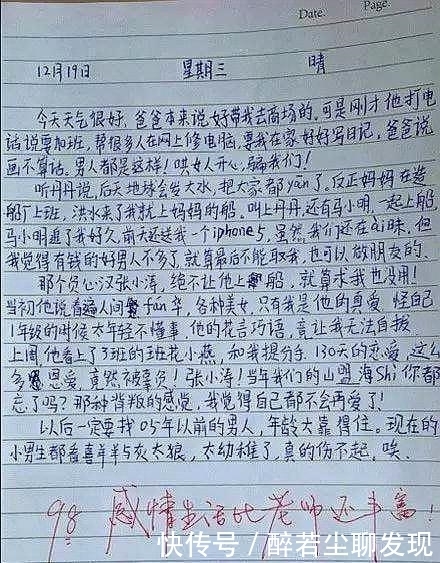 Date.
Page.
12月19日 星期三 晴
今天天气很好，爸爸本来说好带我去商场的，可是刚才他打电
话说要加班，帮很多人在网上修电脑，要我在家好好写日记，爸爸说
画不算话。男人都是这样！哄女人开心，骗我们！
听丹丹说，后天地球会发大水，把大家都yān了。反正妈妈在造
船厂上班，洪水来了我就上妈妈的船。叫上丹丹，还有马小明，一起上船，
马小明追了我好久，前天还送我一个iphone5，虽然我们还在ai昧，但
我觉得有钱的好男人不多了，就算最后不能取我，也可以做朋友的。
那个负心汉张小涛，绝不让他上船，就算求我也没用！
当初他说看遍人间fán华，各种美女，只有我是他的真爱，怪自己
1年级的时候太年轻不懂事，他的花言巧语，竟让我无法自拔
上周他看上了3班的班花小燕，和我提分手，130天的恋爱，这么
多恩爱，竟然被辜负！张小涛！当年我们的山盟海Shi你都
忘了吗？那种背叛的感觉，我觉得自己都不会再爱了！
以后一定要找05年以前的男人，年龄大靠得住。现在的
小男生都看喜羊羊与灰太狼，太幼稚了，真的伤不起，唉、
98 感情生活比老师还丰富！
快传号／醉若尘聊发现